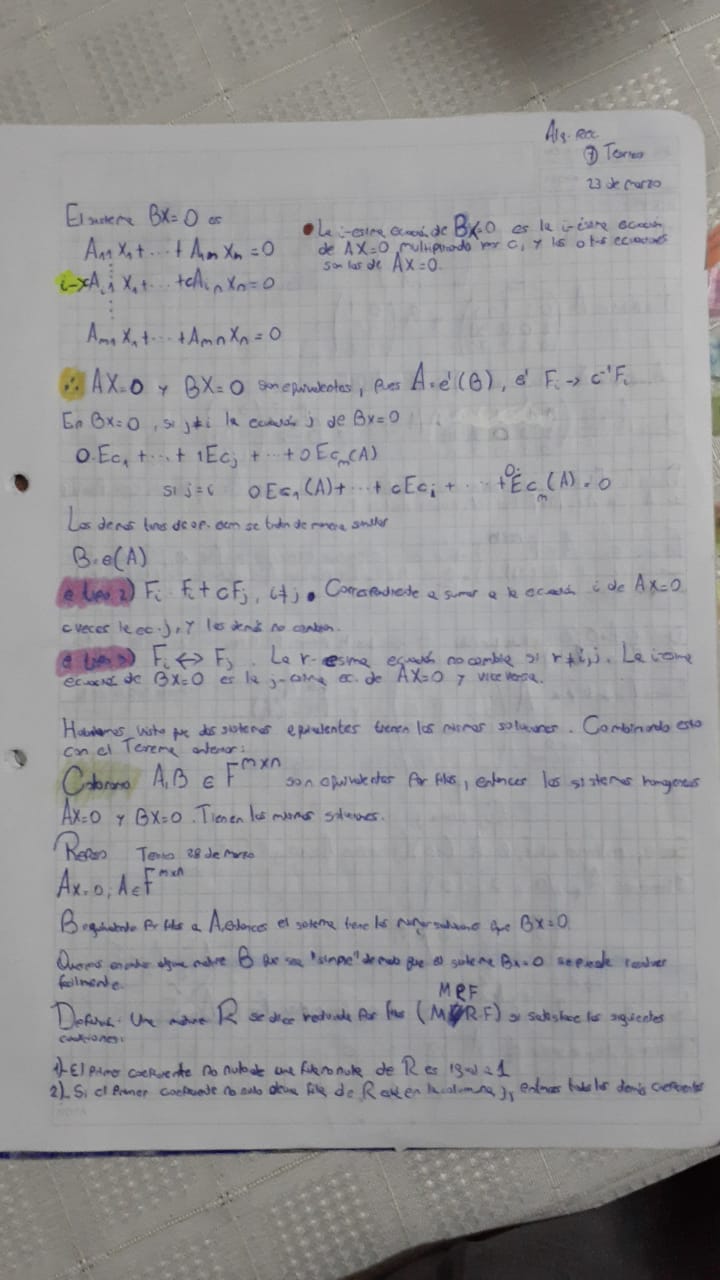 Alg. Rec
⑦ Teorico
23 de marzo
El sistema BX=0 es
A₁₁ X₁ + ... + A₁ₙ Xₙ = 0
i→ cAᵢ₁ X₁ + ... + cAᵢₙ Xₙ = 0
Aₘ₁ X₁ + ... + Aₘₙ Xₙ = 0
• La i-esima ecuación de BX=0 es la i-ésima ecuación
de AX=0 multiplicado por c, y las otras ecuaciones
son las de AX=0.
∴ AX=0 y BX=0 son equivalentes, pues A=e'(B), e' Fᵢ → c⁻¹Fᵢ
En BX=0, si j≠i la ecuación j de BX=0
0.Ec₁ + ... + 1Ecⱼ + ... + 0Ecₘ(A)
si j=i 0Ec₁(A) + ... + cEcᵢ + ... + 0.Ecₘ(A) = 0
Los demas tipos de op. elem se tratan de manera similar
B=e(A)
e tipo 2) Fᵢ Fᵢ + cFⱼ, i≠j. Correspondiente a sumar a la ecuación i de AX=0
c veces la ec. j, y las demás no cambian.
e tipo 3) Fᵢ ↔ Fⱼ. La r-esima ecuación no cambia si r≠i,j. La i-esima
ecuación de BX=0 es la j-esima ec. de AX=0 y viceversa.
Habiamos visto que dos sistemas equivalentes tienen las mismas soluciones. Combinando esto
con el Teorema anterior:
Colorario A,B ∈ Fᵐˣⁿ son equivalentes por filas, entonces los sistemas homogeneos
AX=0 y BX=0. Tienen las mismas soluciones.
Repaso Teorico 28 de marzo
AX=0, A∈Fᵐˣⁿ
B equivalente por filas a A, entonces el sistema tiene las mismas soluciones que BX=0
Queremos encontrar alguna matriz B que sea "simple" de modo que el sistema BX=0 se puede resolver
facilmente.
MRF
Definición: Una matriz R se dice reducida por filas (MRF) si satisface las siguientes
condiciones:
1)- El primer coeficiente no nulo de una fila no nula de R es igual a 1
2)- Si el primer coeficiente no nulo de una fila de R está en la columna j, entonces todos los demás coeficientes